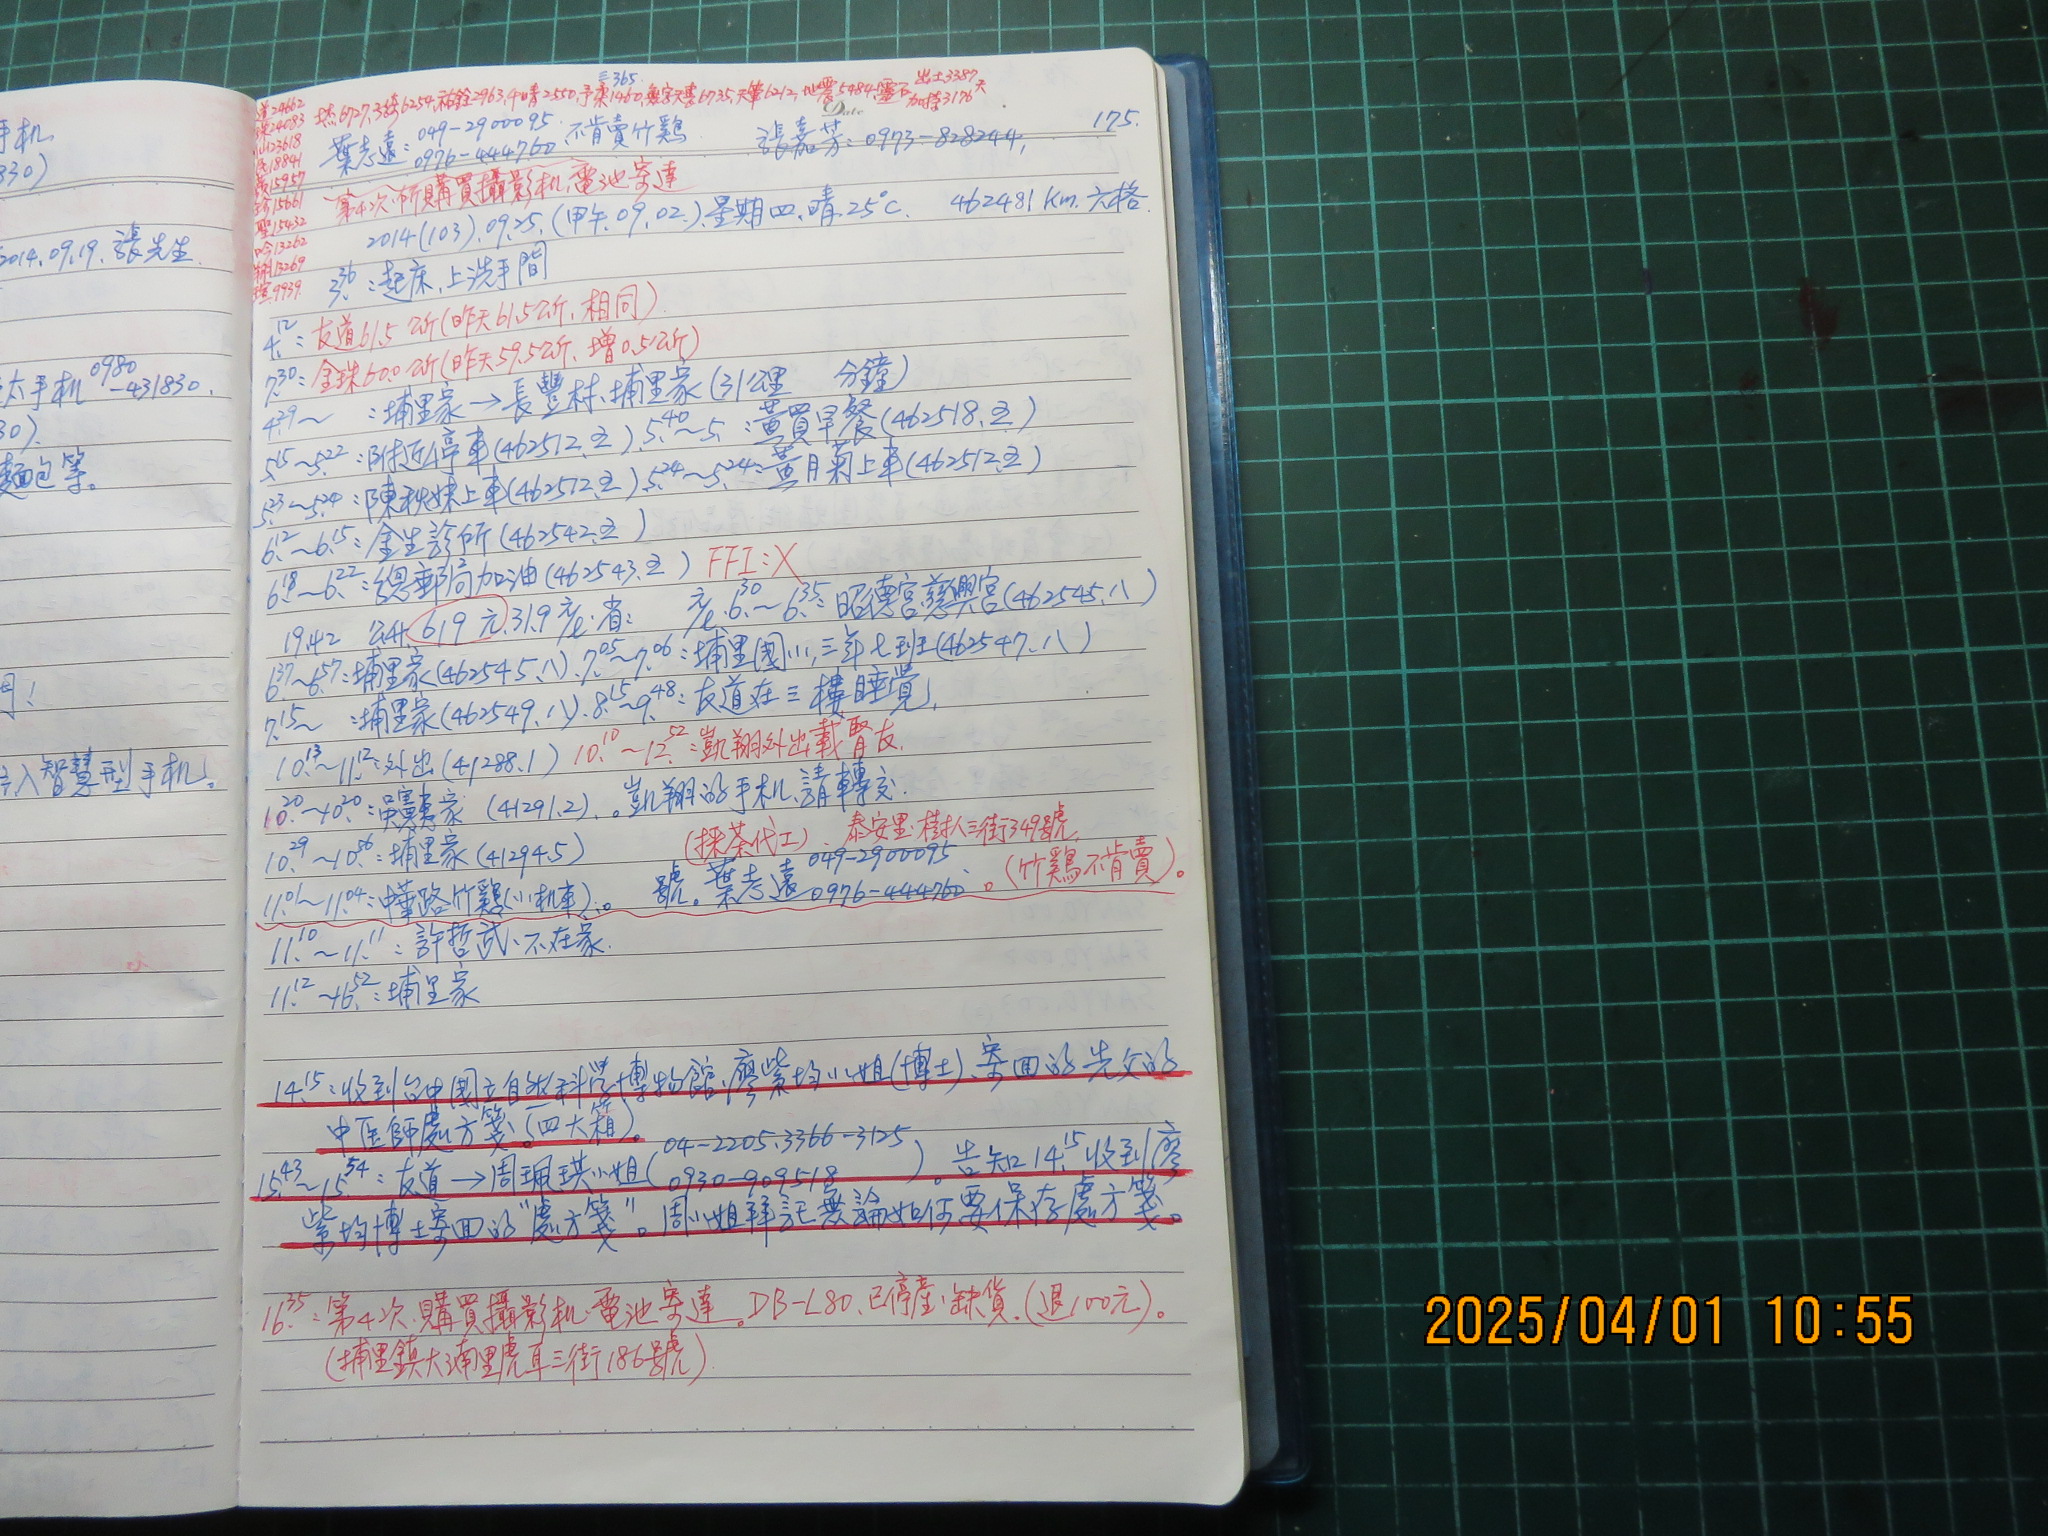 手机
830)
2014.09.19.張先生
太手机 0980-431830.
30).
麵包等。
入智慧型手机。
三365
出土3387天
加持3176
175.
道24662
24083
23618
18841
15957
15661
聖15432
吟13262
翔13269
9939.
葉志遠: 049-2900095. 不肯賣竹鷄
0976-444760
張嘉芳: 0973-828244,
第4次所購買攝影机、電池寄達
2014(103).09.25.(甲午.09.02.).星期四.晴.25°C. 462481 Km.六格.
3.36.:起床、上洗手間
4.12.:友道61.5公斤(昨天61.5公斤、相同)
7.30:金珠60.0公斤(昨天59.5公斤、增0.5公斤)
4.29~ :埔里家→長豐村、埔里家(31公里 分鐘)
5.15~5.22:附近停車(462512.立).5.40~5. :黃買早餐(462518.立)
5.23~5.24:陳秋妹上車(462512.立).5.24~5.24:黃月菊上車(462512.立)
6.12~6.15:金生診所(462542.立)
6.18~6.22:總郵局加油(462543.立) FFI:X
19.42 公升 619元.31.9元/L.省: 元/L.6.30~6.35:昭德宮.慈興宮(462545.八)
6.37~6.57:埔里家(462545.八).7.05~7.06:埔里國小,三年七班(462547.八)
7.15~ :埔里家(462549.八).8.15~9.48:友道在三樓睡覺,
10.13~11.12:外出(41288.1) 10.10~12.52:凱翔外出載腎友.
10.20~10.20: 家 (41291.2).。凱翔的手机、請轉交.
10.29~10.56:埔里家(41294.5) (採茶代工).泰安里.樹人三街349號.
11.01~11.04:中華路竹鷄(小机車).。 號。葉志遠 049-2900095 0976-444760。(竹鷄不肯賣)。
11.10~11.11:許哲武、不在家.
11.12~16.52:埔里家
14.15:收到台中國立自然科學博物館,廖紫均小姐(博士)、寄回的先父的
中医師處方箋。(四大箱)。
15.43~15.54:友道→周珮琪小姐(04-2205.3366-3125 0930-909518)。告知14.15收到廖
紫均博士寄回的"處方箋"。周小姐拜託無論如何要保存處方箋。
16.35:第4次.購買攝影机、電池寄達。DB-L80、已停產、缺貨.(退100元)。
(埔里鎮大埔里虎耳三街186號)